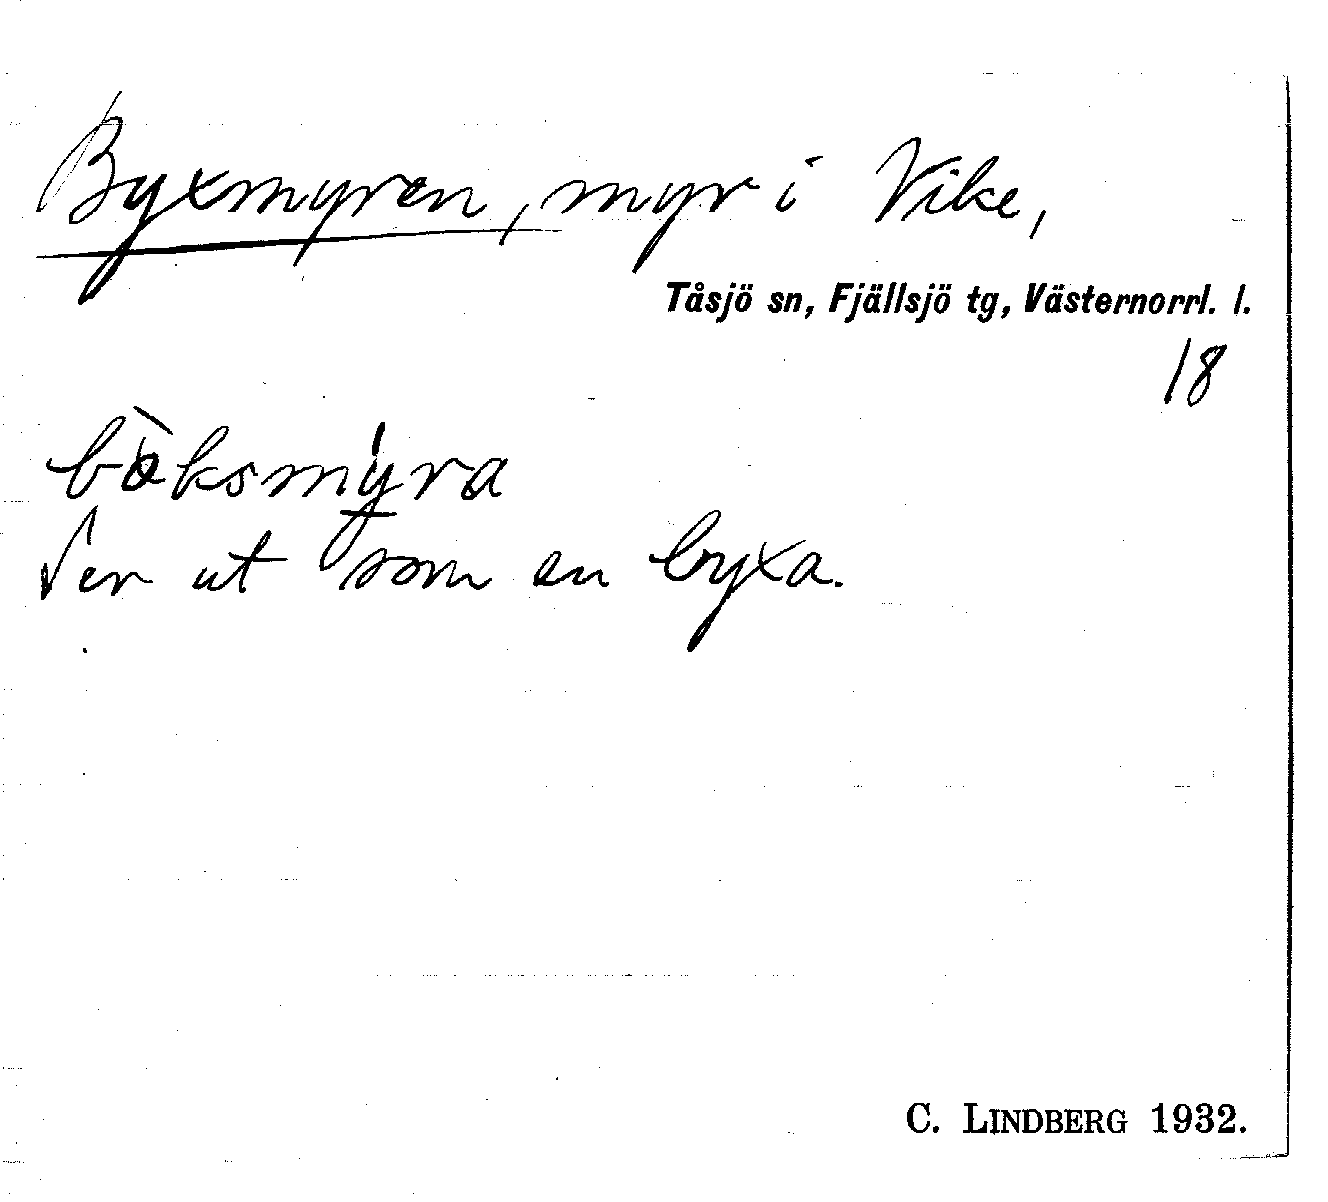 Byxmyren, myr i Vike,
Tåsjö sn, Fjällsjö tg, Västernorrl. l.
18
bòksmýra
Ser ut som en byxa.
C. LINDBERG 1932.